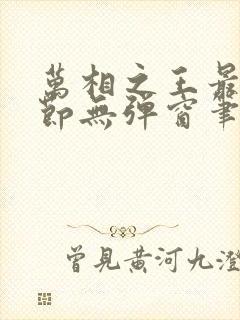 萬相之王最
節無彈窗筆
曾見黃河九澄